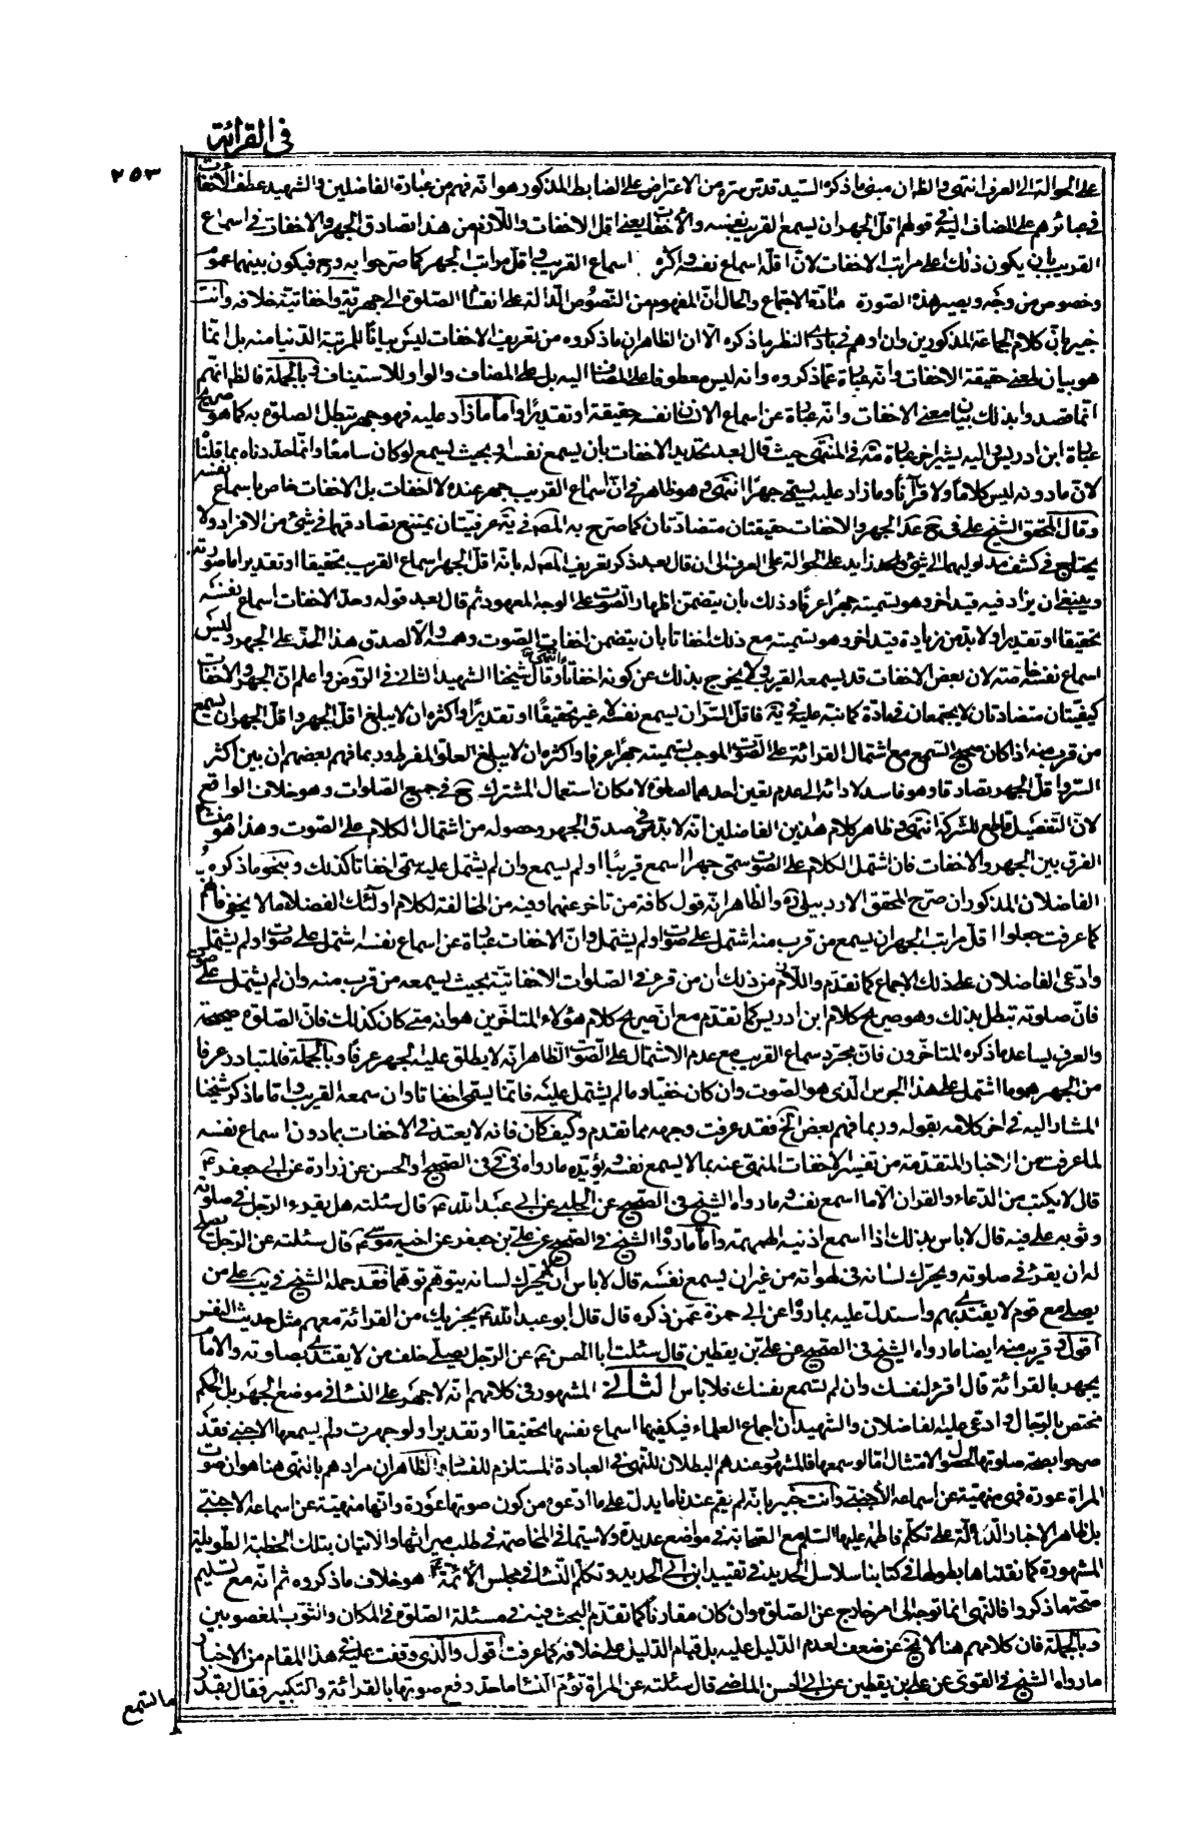 في القرائة
٢٥٣
على الحوالة الى العرف انتهى والظ ان مبنى ما ذكره السيد قدس سره من الاعتراض على الضابط المذكور هو انه فهم من عبارة الفاضلين والشهيد عطف الاخفات
في عبائرهم على المضاف اليه في قولهم اقل الجهر ان يسمع القريب نفسه والاخفات يعني اقل الاخفات واللازم من هذا تصادق الجهر والاخفات في اسماع
القريب بان يكون ذلك اعلى مراتب الاخفات لان اقله اسماع نفسه واكثره اسماع القريب واقل مراتب الجهر كما صرحوا به وح فيكون بينهما عموم
وخصوص من وجه ويصير هذه الصورة مادة الاجتماع والحال ان المفهوم من النصوص الدالة على انقسام الصلوة الى جهرية واخفاتية خلافه وانت
خبير بان كلام الجماعة المذكورين وان اوهم في بادي النظر ما ذكره الا ان الظاهر ان ما ذكروه من تعريف الاخفات ليس بيانا للمرتبة الدنيا منه بل انما
هو بيان لمعنى حقيقة الاخفات وانه عبارة عما ذكروه وانه ليس معطوفا على المضاف اليه بل على المضاف والواو للاستيناف وبالجملة فالظ انهم
انما قصدوا بذلك بيان معنى الاخفات وانه عبارة عن اسماع الانسان نفسه حقيقة او تقديرا واما ما زاد عليه فهو جهر تبطل الصلوة به كما هو صريح
عبارة ابن ادريس واليه يشير اخر عبارة منه في المنتهى حيث قال بعد تحديد الاخفات بان يسمع نفسه او بحيث يسمع لو كان سامعا وانما حددناه بما قلنا
لان ما دونه ليس كلاما ولا قرانا وما زاد عليه يسمى جهرا انتهى وهو ظاهر في ان اسماع القريب جهر عنده لا اخفات بل الاخفات خاص باسماع نفسه
وقال المحقق الشيخ على في ح عد الجهر والاخفات حقيقتان متضادتان كما صرح به المصه في يه عرفيتان يمتنع تصادقهما في شئ من الافراد ولا
يحتاج في كشف مدلوليهما الى شئ زايد على الحوالة على العرف الى ان قال بعد ذكر تعريف المصه له بانه اقل الجهر اسماع القريب تحقيقا او تقديرا ما صورته
وينبغي ان يزاد فيه قيد اخر وهو تسميته جهرا عرفا وذلك بان يتضمن اظهار الصوت على الوجه المعهود ثم قال بعد قوله وحد الاخفات اسماع نفسه
تحقيقا او تقديرا ولا بد من زيادة قيد اخر وهو تسميته مع ذلك اخفاتا بان يتضمن اخفات الصوت وهمسه والا لصدق هذا الحد على الجهر وليس
اسماع نفسه خاصة لان بعض الاخفات قد يسمعه القريب ولا يخرج بذلك عن كونه اخفاتا انتهى وقال شيخنا الشهيد الثاني في الروض واعلم ان الجهر والاخفات
كيفيتان متضادتان لا يجتمعان في مادة كما نبه عليه في يه فاقل السر ان يسمع نفسه لا غير تحقيقا او تقديرا واكثره ان لا يبلغ اقل الجهر واقل الجهر ان يسمع
من قرب منه اذا كان صحيح السمع مع اشتمال القرائة على الصوت الموجب لتسميته جهرا عرفا واكثره ان لا يبلغ العلو المفرط وربما فهم بعضهم ان بين اكثر
السر واقل الجهر تصادقا وهو فاسد لادائه الى عدم تعين احدهما لصلوة لامكان استعمال المشترك ح في جميع الصلوات وهو خلاف الواقع
لان التفصيل قاطع للشركة انتهى وظاهر كلام هذين الفاضلين انه لا بد في صدق الجهر وحصوله من اشتمال الكلام على الصوت وهذا هو مناط
الفرق بين الجهر والاخفات فان اشتمل الكلام على الصوت سمى جهرا اسمع قريبا او لم يسمع وان لم يشتمل عليه سمى اخفاتا كذلك وبنحو ما ذكره
الفاضلان المذكوران صرح المحقق الاردبيلي ره والظاهر انه قول كافة من تاخر عنهما وفيه من المخالفة لكلام اولئك الفضلاء ما لا يخفى فانهم
كما عرفت جعلوا اقل مراتب الجهر ان يسمع من قرب منه اشتمل على صوت او لم يشتمل وان الاخفات عبارة عن اسماع نفسه اشتمل على صوت او لم يشتمل
وادعى الفاضلان على ذلك الاجماع كما تقدم واللازم من ذلك ان من قرء في الصلوات الاخفاتية بحيث يسمعه من قرب منه وان لم يشتمل على صوت
فان صلوته تبطل بذلك وهو صريح كلام ابن ادريس كما تقدم مع ان صريح كلام هؤلاء المتاخرين هو انه متى كان كذلك فان الصلوة صحيحة
والعرف يساعد ما ذكره المتاخرون فان مجرد سماع القريب مع عدم الاشتمال على الصوت الظاهر انه لا يطلق عليه الجهر عرفا وبالجملة فالمتبادر عرفا
من الجهر هو ما اشتمل على هذا الجرس الذي هو الصوت وان كان خفيا وما لم يشتمل عليه فانما يسمى اخفاتا وان سمعه القريب واما ما ذكر شيخنا
المشار اليه في اخر كلامه بقوله وربما فهم بعض الخ فقد عرفت وجهه مما تقدم وكيف كان فانه لا يعتد في الاخفات بما دون اسماع نفسه
لما عرفت من الاخبار المتقدمة من تفسير الاخفات المنهى عنه بما لا يسمع نفسه ويؤيده ما رواه في في في الصحيح او الحسن عن زرارة عن ابي جعفر ع
قال لا يكتب من الدعاء والقران الا ما اسمع نفسه وما رواه الشيخ في الصحيح عن الحلبي عن ابي عبد الله ع قال سئلته هل يقرء الرجل في صلوته
وثوبه على فيه قال لا باس بذلك اذا اسمع اذنيه الهمهمة واما ما رواه الشيخ في الصحيح عن علي بن جعفر عن اخيه موسى ع قال سئلته عن الرجل يصلح
له ان يقرء في صلوته ويحرك لسانه في لهواته من غير ان يسمع نفسه قال لا باس ان لا يحرك لسانه يتوهم توهما فقد حمله الشيخ في يب على من
يصلى مع قوم لا يقتدى بهم واستدل عليه بما رواه عن ابي حمزة عمن ذكره قال قال ابو عبد الله ع يجزيك من القرائة معهم مثل حديث النفس
اقول وقريب منه ايضا ما رواه الشيخ في الصحيح عن علي بن يقطين قال سئلت ابا الحسن ع عن الرجل يصلى خلف من لا يقتدى بصلوته والامام
يجهر بالقرائة قال اقرء لنفسك وان لم تسمع نفسك فلا باس الثاني المشهور في كلامهم انه لا جهر على النساء في موضع الجهر بل الحكم
مختص بالرجال وادعى عليه الفاضلان والشهيدان اجماع العلماء فيكفيها اسماع نفسها تحقيقا او تقديرا ولو جهرت ولم يسمعها الاجنبي فقد
صرحوا بصحة صلوتها لحصول الامتثال اما لو سمعها فالمشهور عندهم البطلان للنهى في العبادة المستلزم للفساد الظاهر ان مرادهم بالنهى هنا هو ان صوت
المراة عورة فهي منهية عن اسماعه الاجنبي وانت خبير بانه لم يقم عندنا ما يدل على ما ادعوه من كون صوتها عورة وانها منهية عن اسماعه الاجنبي
بل ظاهر الاخبار الدالة على تكلم فاطمة عليها السلم مع الصحابة في مواضع عديدة ولا سيما في المخاصمة في طلب ميراثها والاتيان بتلك الخطبة الطويلة
المشهورة كما نقلناها بطولها في كتابنا سلاسل الحديد في تقييد ابن ابي الحديد وتكلم النساء في مجلس الأئمة ع هو خلاف ما ذكروه ثم انه مع تسليم
صحة ما ذكروا فالنهى انما توجه الى امر خارج عن الصلوة وان كان مقارنا كما تقدم البحث فيه في مسئلة الصلوة في المكان والثوب المغصوبين
وبالجملة فان كلامهم هنا لا يخ عن ضعف لعدم الدليل عليه بل قيام الدليل على خلافه كما عرفت اقول والذي وقفت عليه في هذا المقام من الاخبار
ما رواه الشيخ في القوى عن علي بن يقطين عن ابي الحسن الماضي قال سئلته عن المراة تؤم النساء ما حد رفع صوتها بالقرائة والتكبير فقال بقدر
ما تسمع